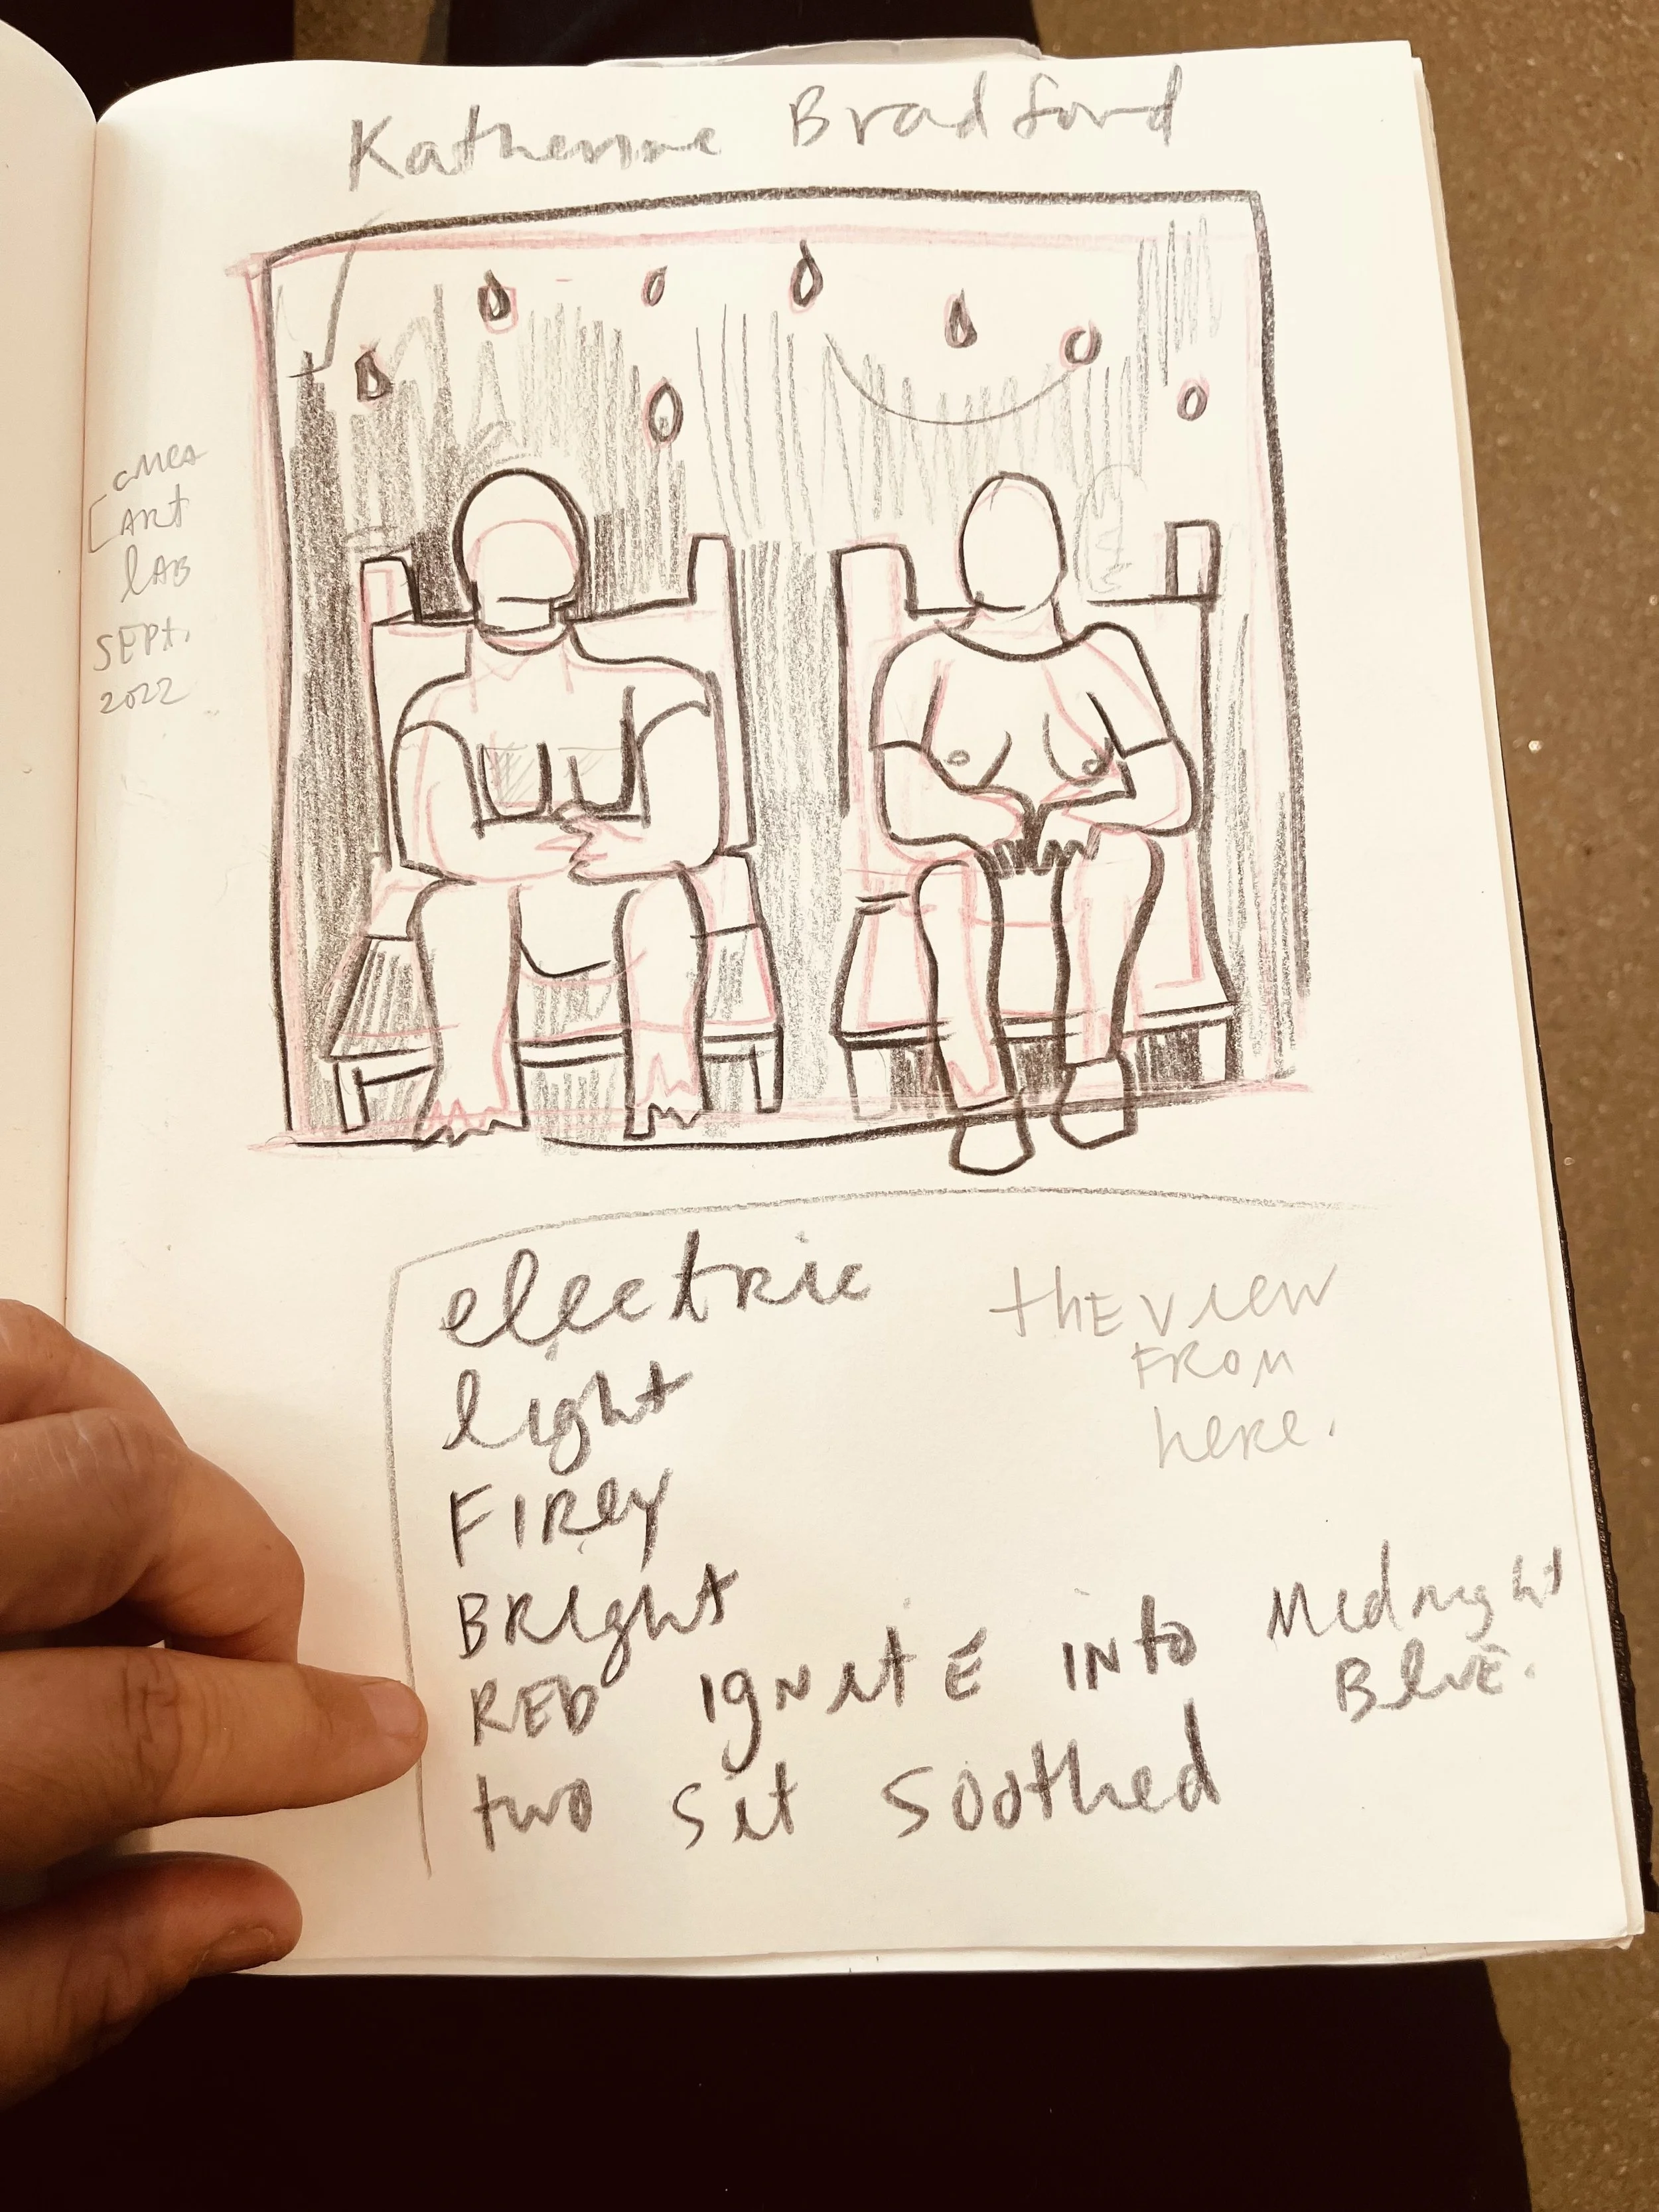 Katherine Bradford
CMCA
ART
lAB
SEPt.
2022
electric
light
FIREy
BRight
RED ignitE into Midnight
BluE.
two sit soothed
thE view
FROM
heRe.